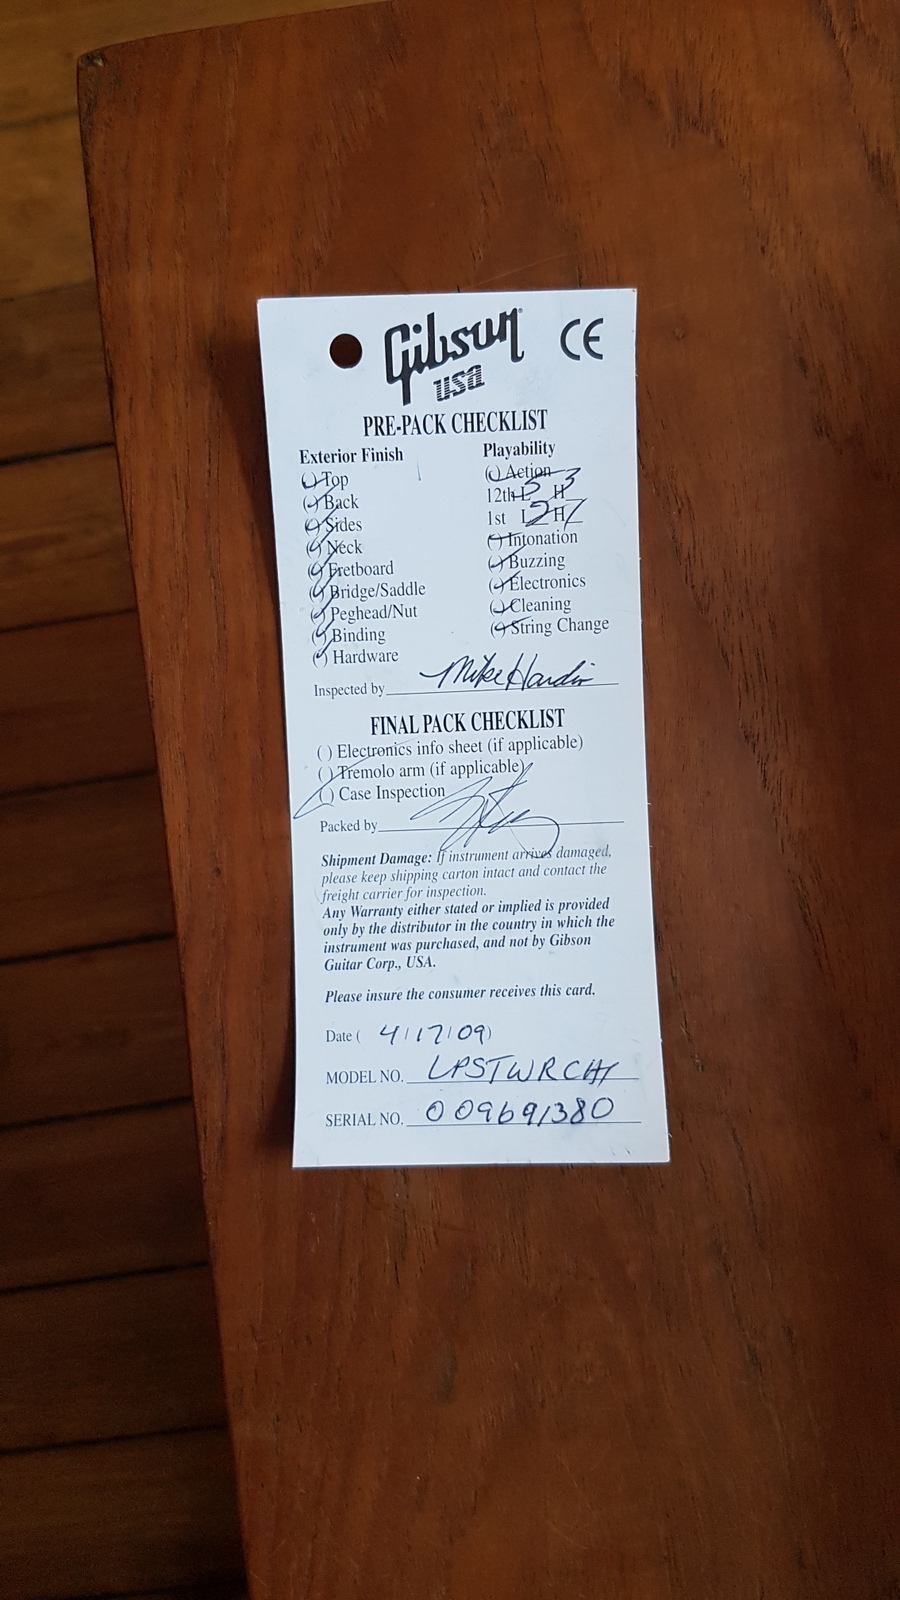 Gibson CE
usa
PRE-PACK CHECKLIST
Exterior Finish
(✓) Top
(✓) Back
(✓) Sides
(✓) Neck
(✓) Fretboard
(✓) Bridge/Saddle
(✓) Peghead/Nut
(✓) Binding
(✓) Hardware
Playability
(✓) Action
12th L 5 H 3
1st L 2 H 1
(✓) Intonation
(✓) Buzzing
(✓) Electronics
(✓) Cleaning
(✓) String Change
Inspected by Mike Hardin
FINAL PACK CHECKLIST
( ) Electronics info sheet (if applicable)
( ) Tremolo arm (if applicable)
( ) Case Inspection
Packed by
Shipment Damage: If instrument arrives damaged,
please keep shipping carton intact and contact the
freight carrier for inspection.
Any Warranty either stated or implied is provided
only by the distributor in the country in which the
instrument was purchased, and not by Gibson
Guitar Corp., USA.
Please insure the consumer receives this card.
Date ( 4/17/09)
MODEL NO. LPSTWRCH1
SERIAL NO. 009691380